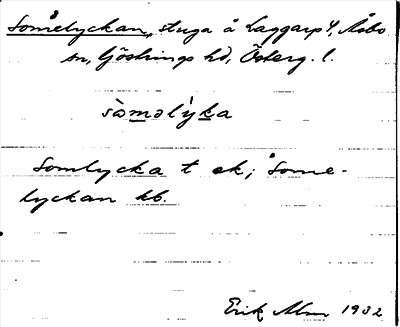 Somelyckan, stuga å Laggarp 4, Åsbo
sn, Göstrings hd, Österg. l.
sòməlỳka
Somlycka t ek; Some-
lyckan kb.
Erik Alm 1932